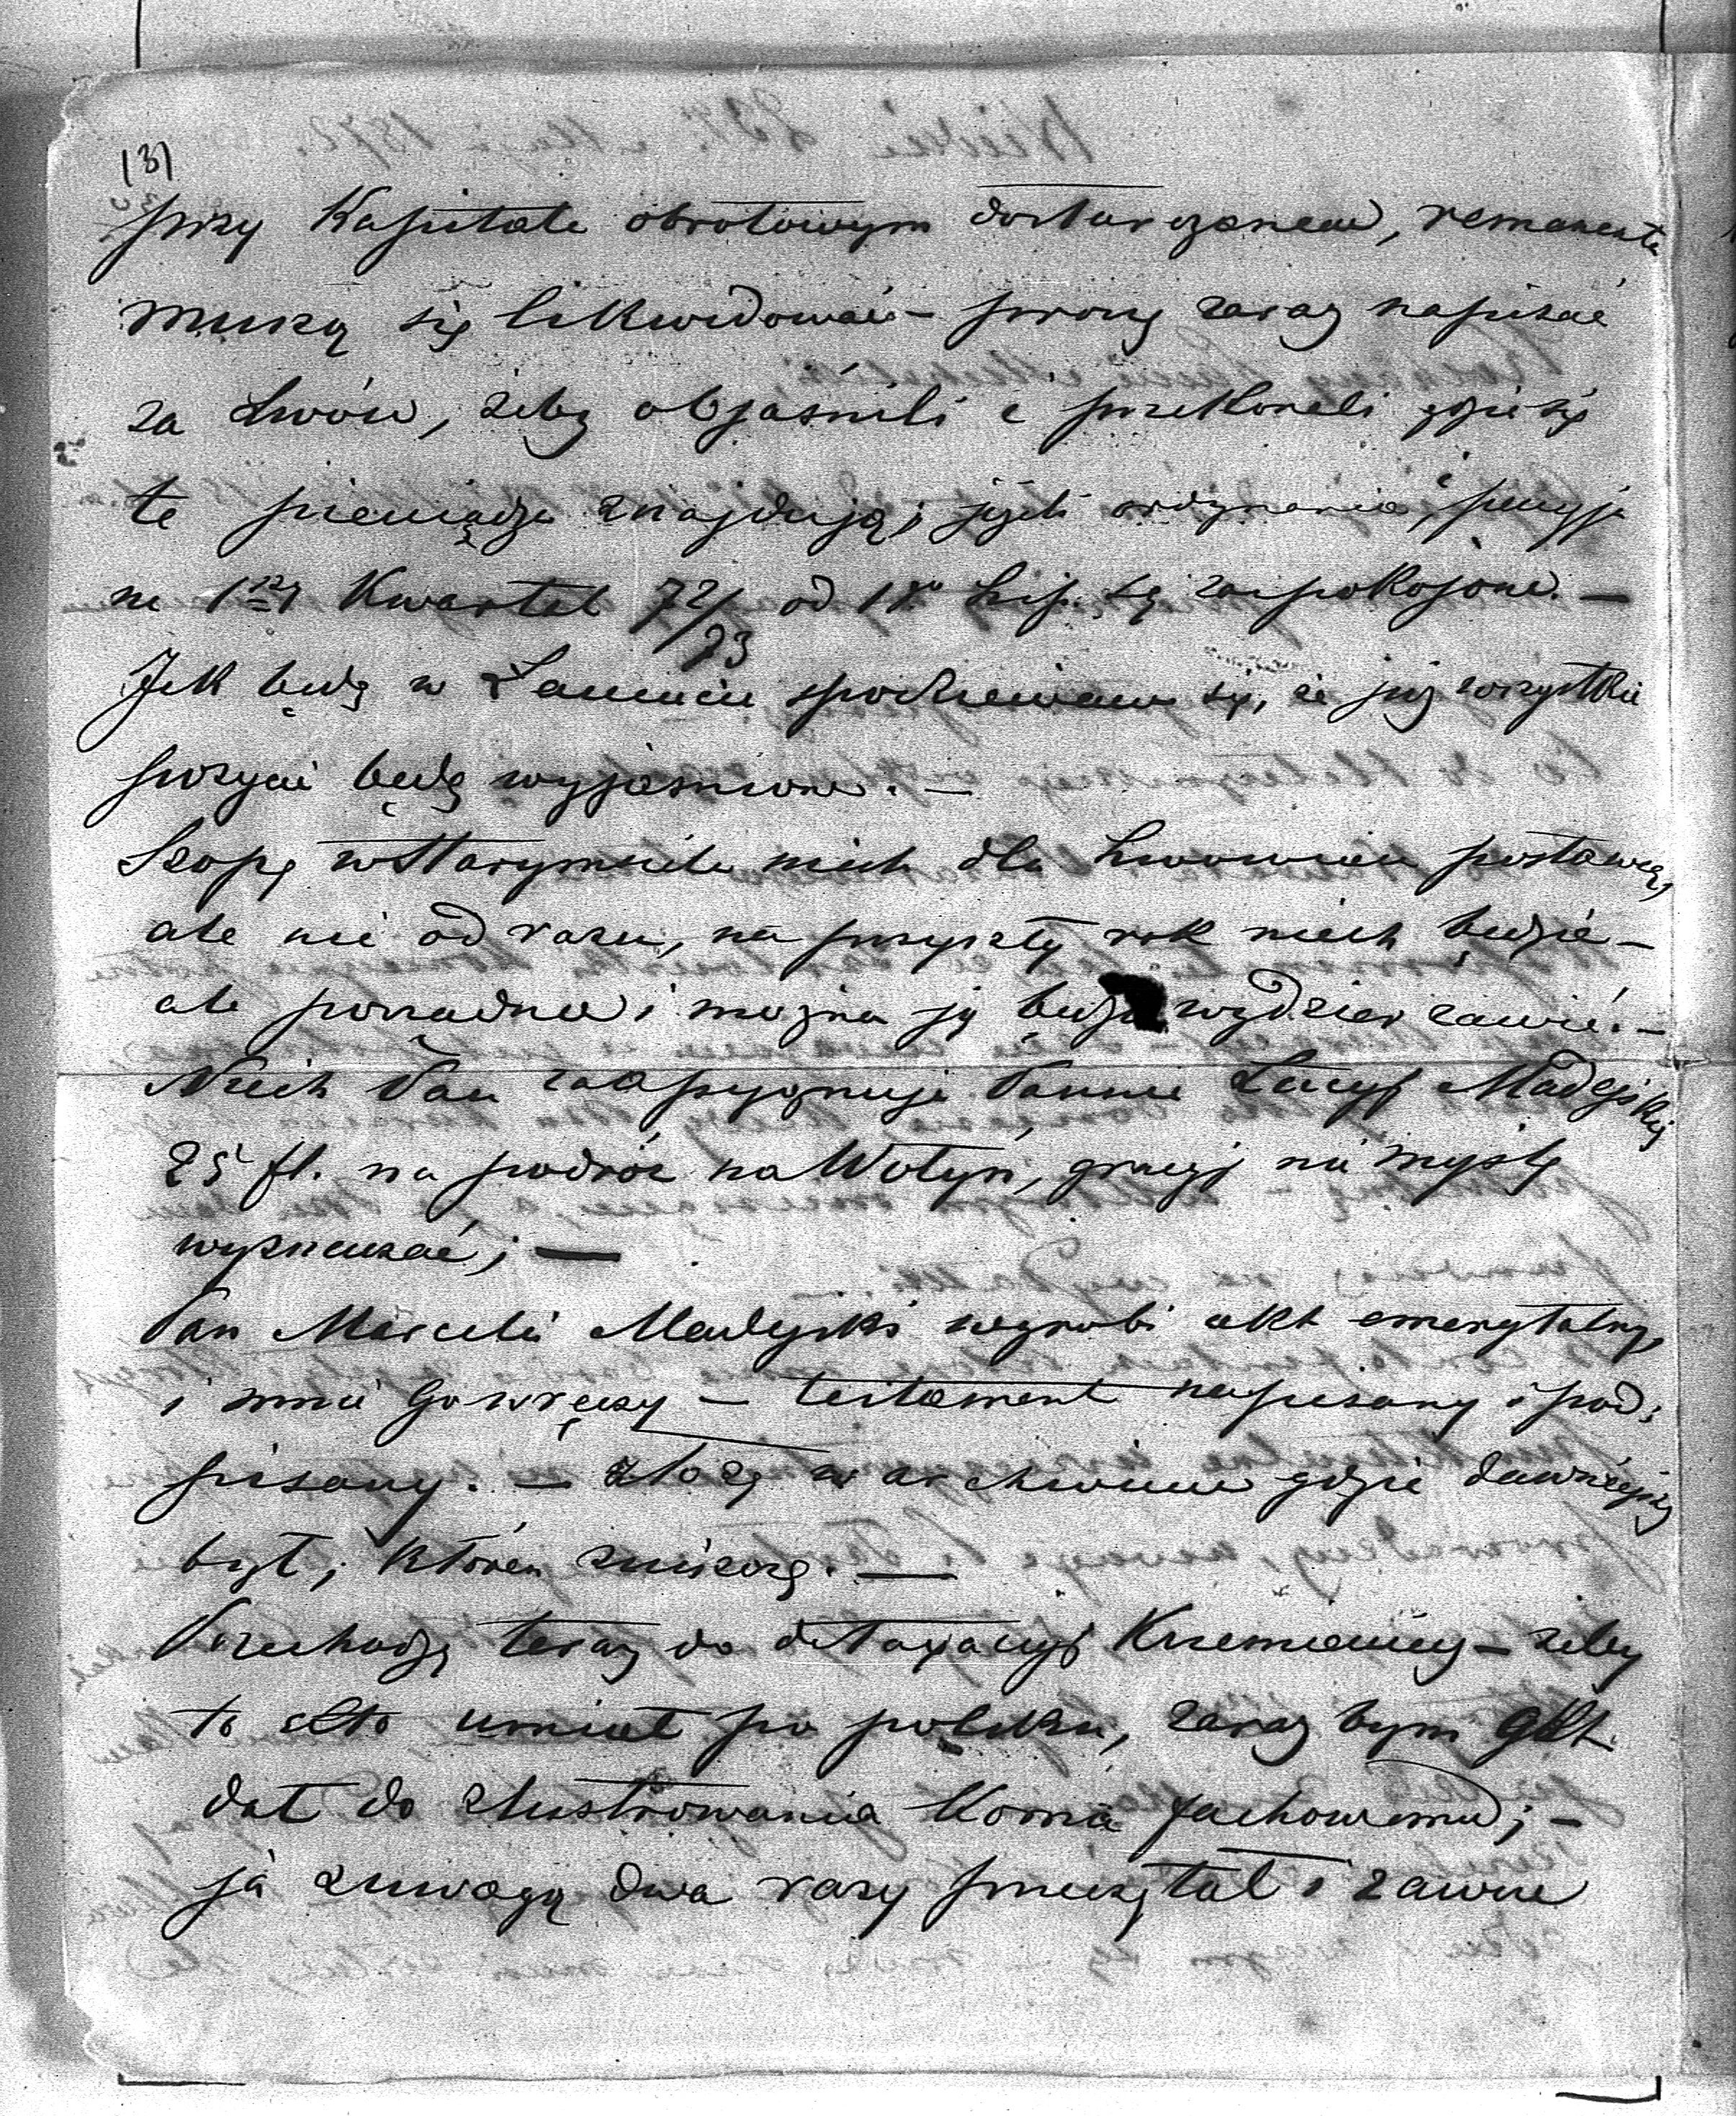 (3)
przy Kapitale obrotowym dostarczanem, remanenta
muszą się likwidować – proszę zaraz napisać
za Lwów, żeby objaśnili i przekonali gdzie się
te pieniądze znajdują; jeżeli ordynarie, i pensyje
na 1szy Kwartał 72/73 od 1go Lip. są zaspokojone. —
Jak będę w Łańcucie spodziewam się, że już wszystkie
pozycie będą wyjaśnione. —
Szopę w Starymsiele niech dla Lwowian postawią,
ale nie od razu, na przyszły rok niech będzie –
ale porządna i można ją będzie wydzierżawić. –
Niech Pan zaasygnuje Pannie Łucyj Madejskiej
25 fl. na podróż na Wołyń, gracyj nie myślę
wyznaczać; —
Pan Marceli Madejski wyrobi akt emerytalny,
i mnie Go wręczy – testament napisany i pod:
pisany. – złożę w archiwum gdzie dawniejszy
był, któren zniszczę. —
Przechodzę teraz do detaxacyj Krzemienicy – żeby
to Otto umiał po polsku, zaraz bym akt
dał do zlustrowania Korna fachowemu; –
ja z uwagą dwa razy przeczytał i zawsze